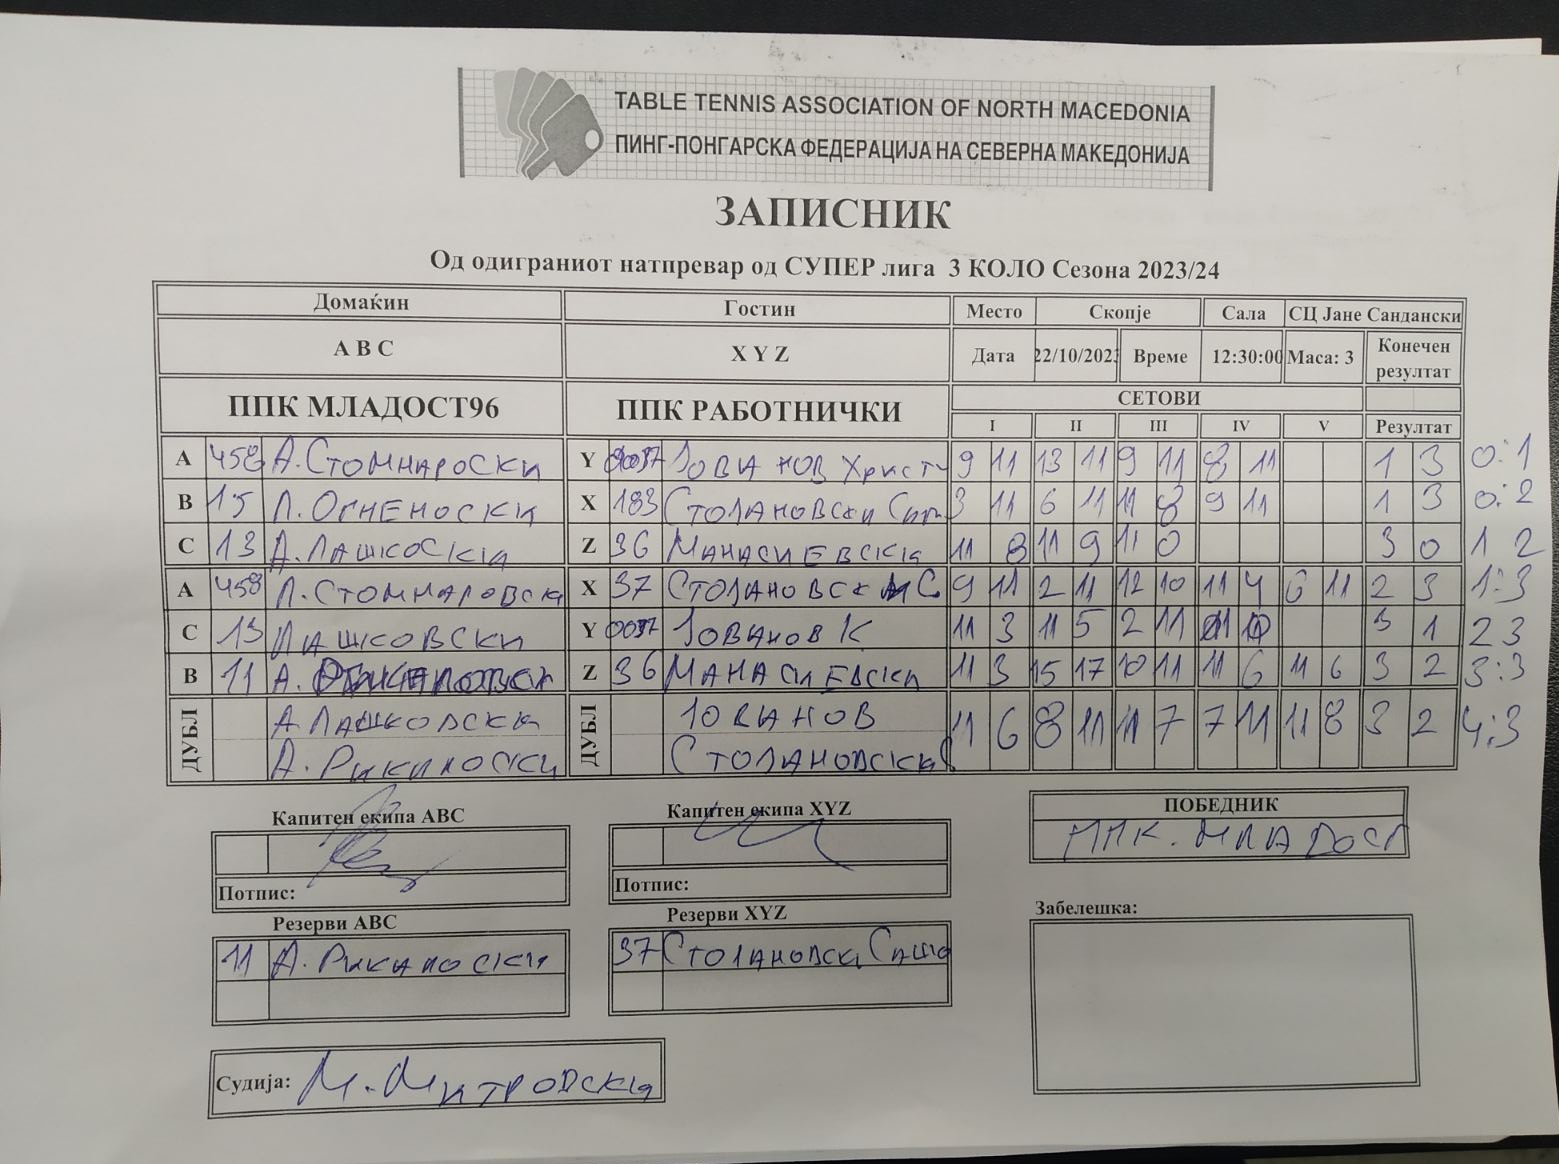 TABLE TENNIS ASSOCIATION OF NORTH MACEDONIA
ПИНГ-ПОНГАРСКА ФЕДЕРАЦИЈА НА СЕВЕРНА МАКЕДОНИЈА
ЗАПИСНИК
Од одиграниот натпревар од СУПЕР лига 3 КОЛО Сезона 2023/24
Домаќин Гостин Место Скопје Сала СЦ Јане Сандански
A B C X Y Z Дата 22/10/2023 Време 12:30:00 Маса: 3 Конечен резултат
ППК МЛАДОСТ96 ППК РАБОТНИЧКИ СЕТОВИ
I II III IV V Резултат
A 458 А. Стомнароски Y 0037 Јованов Христ 9 11 13 11 9 11 8 11 1 3 0:1
B 15 Л. Огненоски X 183 Столановски 3 11 6 11 11 8 9 11 1 3 0:2
C 13 А. Лашкоски Z 36 Манасиевски 11 8 11 9 11 0 3 0 1 2
A 458 Л. Стомнаровски X 37 Столановски С 9 11 2 11 12 10 11 4 6 11 2 3 1:3
C 13 Лашковски Y 0037 Јованов К 11 3 11 5 2 11 3 1 2 3
B 11 А. Z 36 Манасиевски 11 3 15 17 10 11 11 6 11 6 3 2 3:3
ДУБЛ А Лашковски ДУБЛ Јованов 11 6 8 11 11 7 7 11 11 8 3 2 4:3
А. Рикалоски Столановски С
Капитен екипа ABC Капитен екипа XYZ ПОБЕДНИК
ППК. МЛАДОСТ
Потпис: Потпис:
Резерви ABC Резерви XYZ Забелешка:
11 А. Рикалоски 37 Столановски Сашо
Судија: М. Митровски